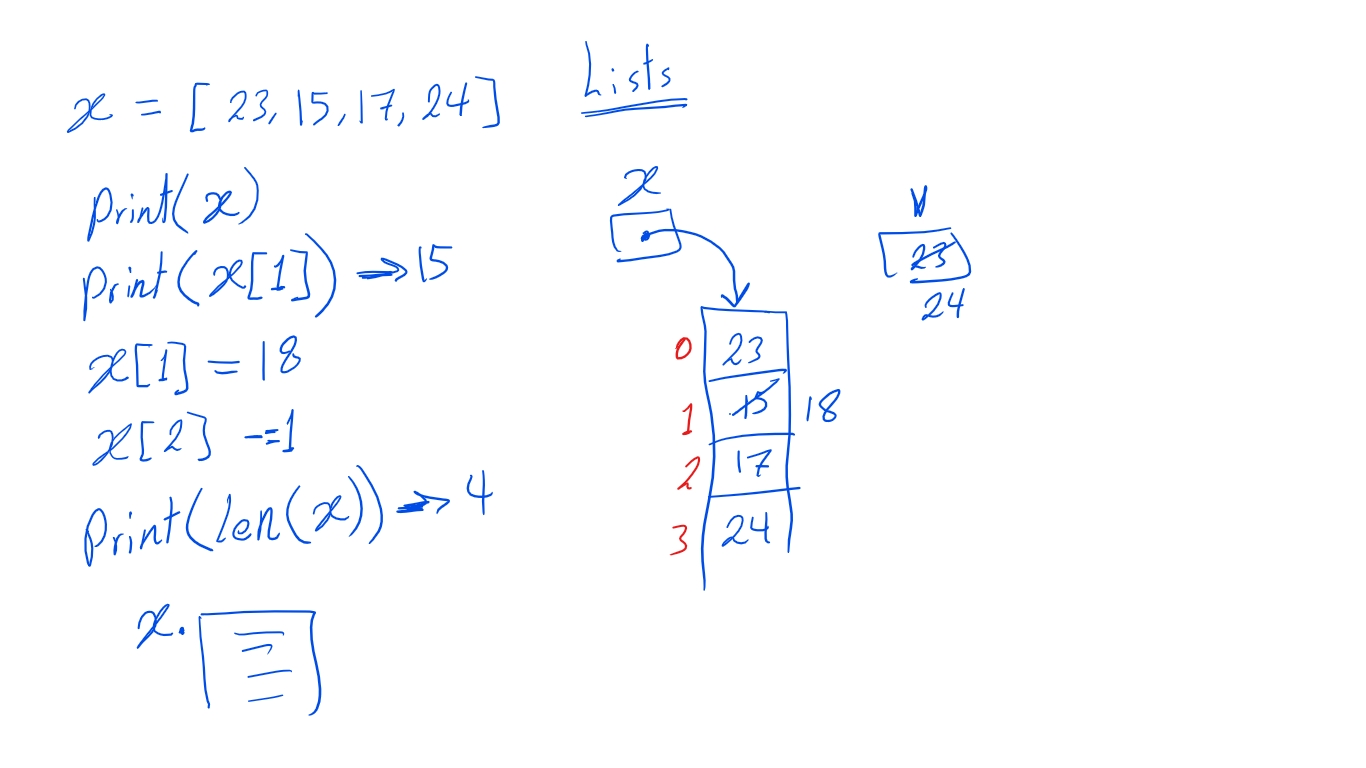 Lists
x = [ 23, 15, 17, 24 ]
print(x)
print(x[1]) → 15
x[1] = 18
x[2] -= 1
Print(len(x)) → 4
x.
x
0 23
1 15 18
2 17
3 24
23
24